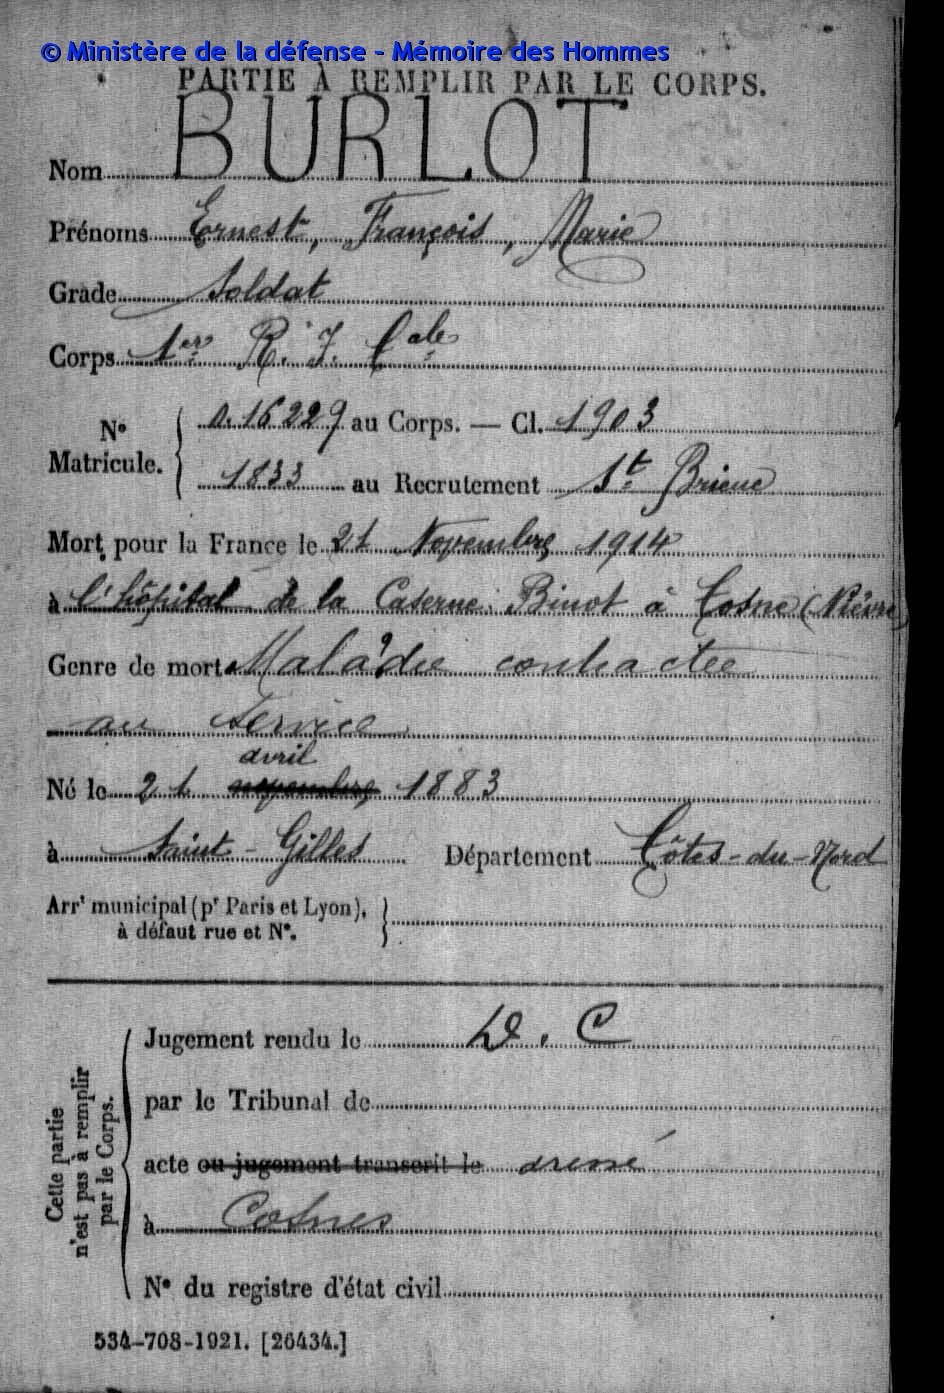 © Ministère de la défense - Mémoire des Hommes
PARTIE À REMPLIR PAR LE CORPS.
Nom BURLOT
Prénoms Ernest, François, Marie
Grade Soldat
Corps 1er R. I. Cale
N° Matricule. 0.16229 au Corps. — Cl. 1903
1833 au Recrutement St Brieuc
Mort pour la France le 21 Novembre 1914
à l'hôpital de la Caserne Binot à Cosne (Nièvre)
Genre de mort Maladie contractée
au Service
avril
Né le 21 novembre 1883
à Saint-Gilles Département Côtes-du-Nord
Arrt municipal (pr Paris et Lyon),
à défaut rue et N°.
Cette partie
n'est pas à remplir
par le Corps.
Jugement rendu le D. C
par le Tribunal de
acte ou jugement transcrit le dressé
à Cosnes
N° du registre d'état civil
534-708-1921. [26434.]